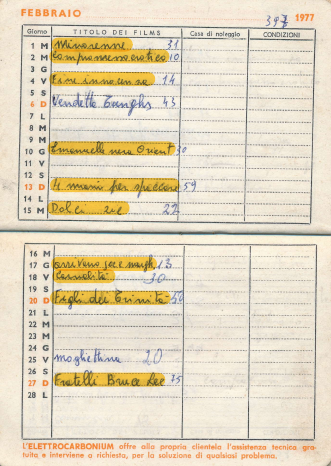 FEBBRAIO 1977
397
Giorno TITOLO DEI FILMS Casa di noleggio CONDIZIONI
1 M Minorenne 31
2 M Compromesso erotico 10
3 G
4 V Fine innocenza 14
5 S
6 D Vendetta 43
7 L
8 M
9 M
10 G Emanuelle nera Orient 30
11 V
12 S
13 D 4 mani per spaccare 59
14 L
15 M Dolci zie 22
16 M
17 G arrivano Joe e margh 13
18 V 30
19 S
20 D Figli dei Trinità 50
21 L
22 M
23 M
24 G
25 V moghettina 20
26 S
27 D Fratelli Bruce Lee 75
28 L
L'ELETTROCARBONIUM offre alla propria clientela l'assistenza tecnica gra-
tuita e interviene a richiesta, per la soluzione di qualsiasi problema.